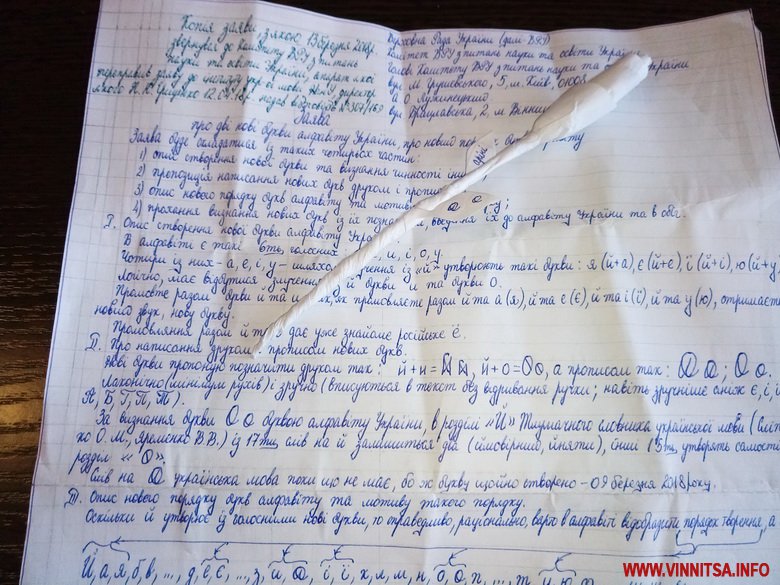 Копія заяви, з якою 13 березня 2018р.
звернувся до Комітету ВРУ з питань
науки та освіти України, апарат якої
переправив заяву до інституту укр-ої мови НАНУ директор
якого П.Ю. Гриценко 12.04.18р. надав відповідь №307/169
Верховна Рада України (далі ВРУ)
Комітет ВРУ з питань науки та освіти України
Голові Комітету ВРУ з питань науки та України
вул. М. Грушевського, 5, м. Київ, 01008
А О Лужинецький
вул Брацлавська, 2, м Вінниц
Заява
про дві нові букви алфавіту України, про новий пор
Заява буде складатися із таких чотирьох частин:
1) опис створення нової букви та визнання чинності
2) пропозиція написання нових букв друком і
3) опис нового порядку букв алфавіту та мотив
4) прохання визнання нових букв, їх введення їх до алфавіту України та в обіг.
І. Опис створення нової букви алфавіту Укра
В алфавіті є такі голосних и, і, о, у.
Чотири із них - а, е, і, у - шляхом злучення із «й» утворюють такі букви: я (й+а), є (й+е), ї (й+і), ю (й+у
Логічно, має відбутися злучення й букви й та букви о.
Промовте разом букви й та и так, як промовляєте разом й та а (я), й та е (є), й та і (ї), й та у (ю), отримаєте
нового звук, нову букву.
Промовляння разом й та о дає уже знайоме російське ё.
ІІ. Про написання друком і прописом нових букв.
Нові букви пропоную позначити друком так: й+и= , й+о= , а прописом так:
Лаконічно (мінімум рухів) і зручно (вписуються в текст без відривання ручки; навіть зручніше аніж є, і, ї
А, Б Г, П, Т).
За визнання букви буквою алфавіту України, в розділі «Й» Тлумачного словника української мови
ко О. М., Яременко В В.) із 17ти слів на й залишиться два (ймовірний, йняти), інші 15ть утворять самості
розділ
Слів на українська мова поки що не має, бо ж букву щойно створено - 09 березня 2018 року.
ІІІ. Опис нового порядку букв алфавіту та мотиву такого порядку.
Оскільки й утворює із голосними нові букви, то справедливо, раціонально, варто в алфавіті відобразити порядок творення, а
Й, а, я, б, в, ..., д, е, є, ..., з, и, і, ї, к, л, м, н, о, п, ..., т, у, ю
WWW.VINNITSA.INFO